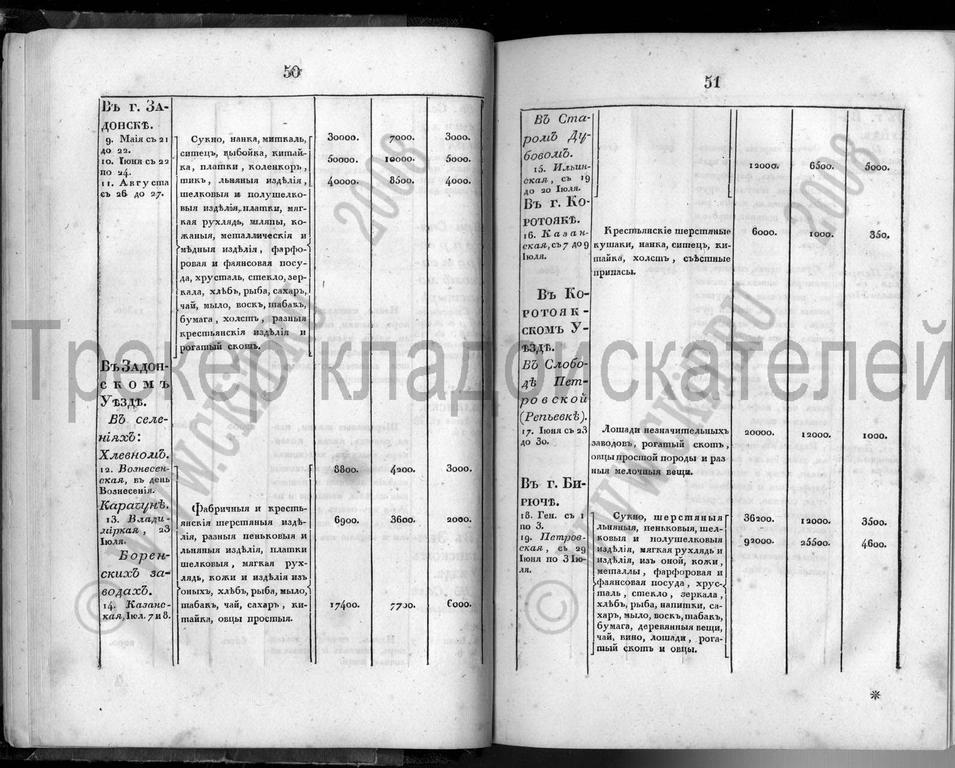 50
Въ г. ЗА-
ДОНСКѢ.
9. Маія съ 21
до 22.
10. Іюня съ 22
по 24.
11. Августа
съ 26 до 27.
Сукно, нанка, миткаль,
ситецъ, выбойка, китай-
ка, платки, коленкоръ,
тикъ, льняныя издѣлія,
шелковыя и полушелко-
выя издѣлія, платки, мяг-
кая рухлядь, шляпы, ко-
жаныя, металлическія и
мѣдныя издѣлія, фарфо-
ровая и фаянсовая посу-
да, хрусталь, стекло, зер-
кала, хлѣбъ, рыба, сахаръ,
чай, мыло, воскъ, табакъ,
бумага, холстъ, разныя
крестьянскія издѣлія и
рогатый скотъ.
30000. 7000. 3000.
50000. 10000. 5000.
40000. 8500. 4000.
Въ ЗАДОН-
СКОМЪ
Уѣздѣ.
Въ селе-
ніяхъ:
Хлевномъ.
12. Вознесен-
ская, въ день
Вознесенія.
8800. 4200. 3000.
Карагунѣ.
13. Влади-
мірская, 23
Іюля.
6900. 3600. 2000.
Борен-
скихъ за-
водахъ.
14. Казанс-
кая, Іюл. 7 и 8.
17400. 7700. 6000.
фабричныя и кресть-
янскія шерстяныя издѣ-
лія, разныя пеньковыя и
льняныя издѣлія, платки
шелковыя, мягкая рух-
лядь, кожи и издѣлія изъ
оныхъ, хлѣбъ, рыба, мыло,
табакъ, чай, сахаръ, ки-
тайка, овцы простыя.
51
Въ Ста-
ромъ Ду-
бовомъ.
15. Ильин-
ская, съ 19
до 20 Іюля.
12000. 6500. 5000.
Въ г. Ко-
РОТОЯКѢ.
16. Казан-
ская, съ 7 до 9
Іюля.
Крестьянскіе шерстяные
кушаки, нанка, ситецъ, ки-
тайка, холстъ, съѣстные
припасы.
6000. 1000. 350.
Въ Ко-
РОТОЯК-
СКОМЪ У-
ѢЗДѢ.
Въ Слобо-
дѣ Пет-
ровской
(Репьевкѣ).
17. Іюня съ 23
до 30.
Лошади незначительныхъ
заводовъ, рогатый скотъ,
овцы простой породы и раз
ныя мелочныя вещи.
20000. 12000. 1000.
Въ г. Би-
РЮЧѢ.
18. Ген. съ 1
по 3.
19. Петров-
ская, съ 29
Іюня по 3 Ію-
ля.
Сукно, шерстяныя
льняныя, пеньковыя, шел-
ковыя и полушелковыя
издѣлія, мягкая рухлядь и
издѣлія, изъ оной, кожи,
металлы, фарфоровая и
фаянсовая посуда, хрус-
таль, стекло, зеркала,
хлѣбъ, рыба, напитки, са-
харъ, мыло, воскъ, табакъ,
бумага, деревянныя вещи,
чай, вино, лошади, рога-
тый скотъ и овцы.
36200. 12000. 3500.
92000. 25500. 4600.
Трекер кладоискателей
© WWW.CKB.RU 2008
© WWW.CKB.RU 2008